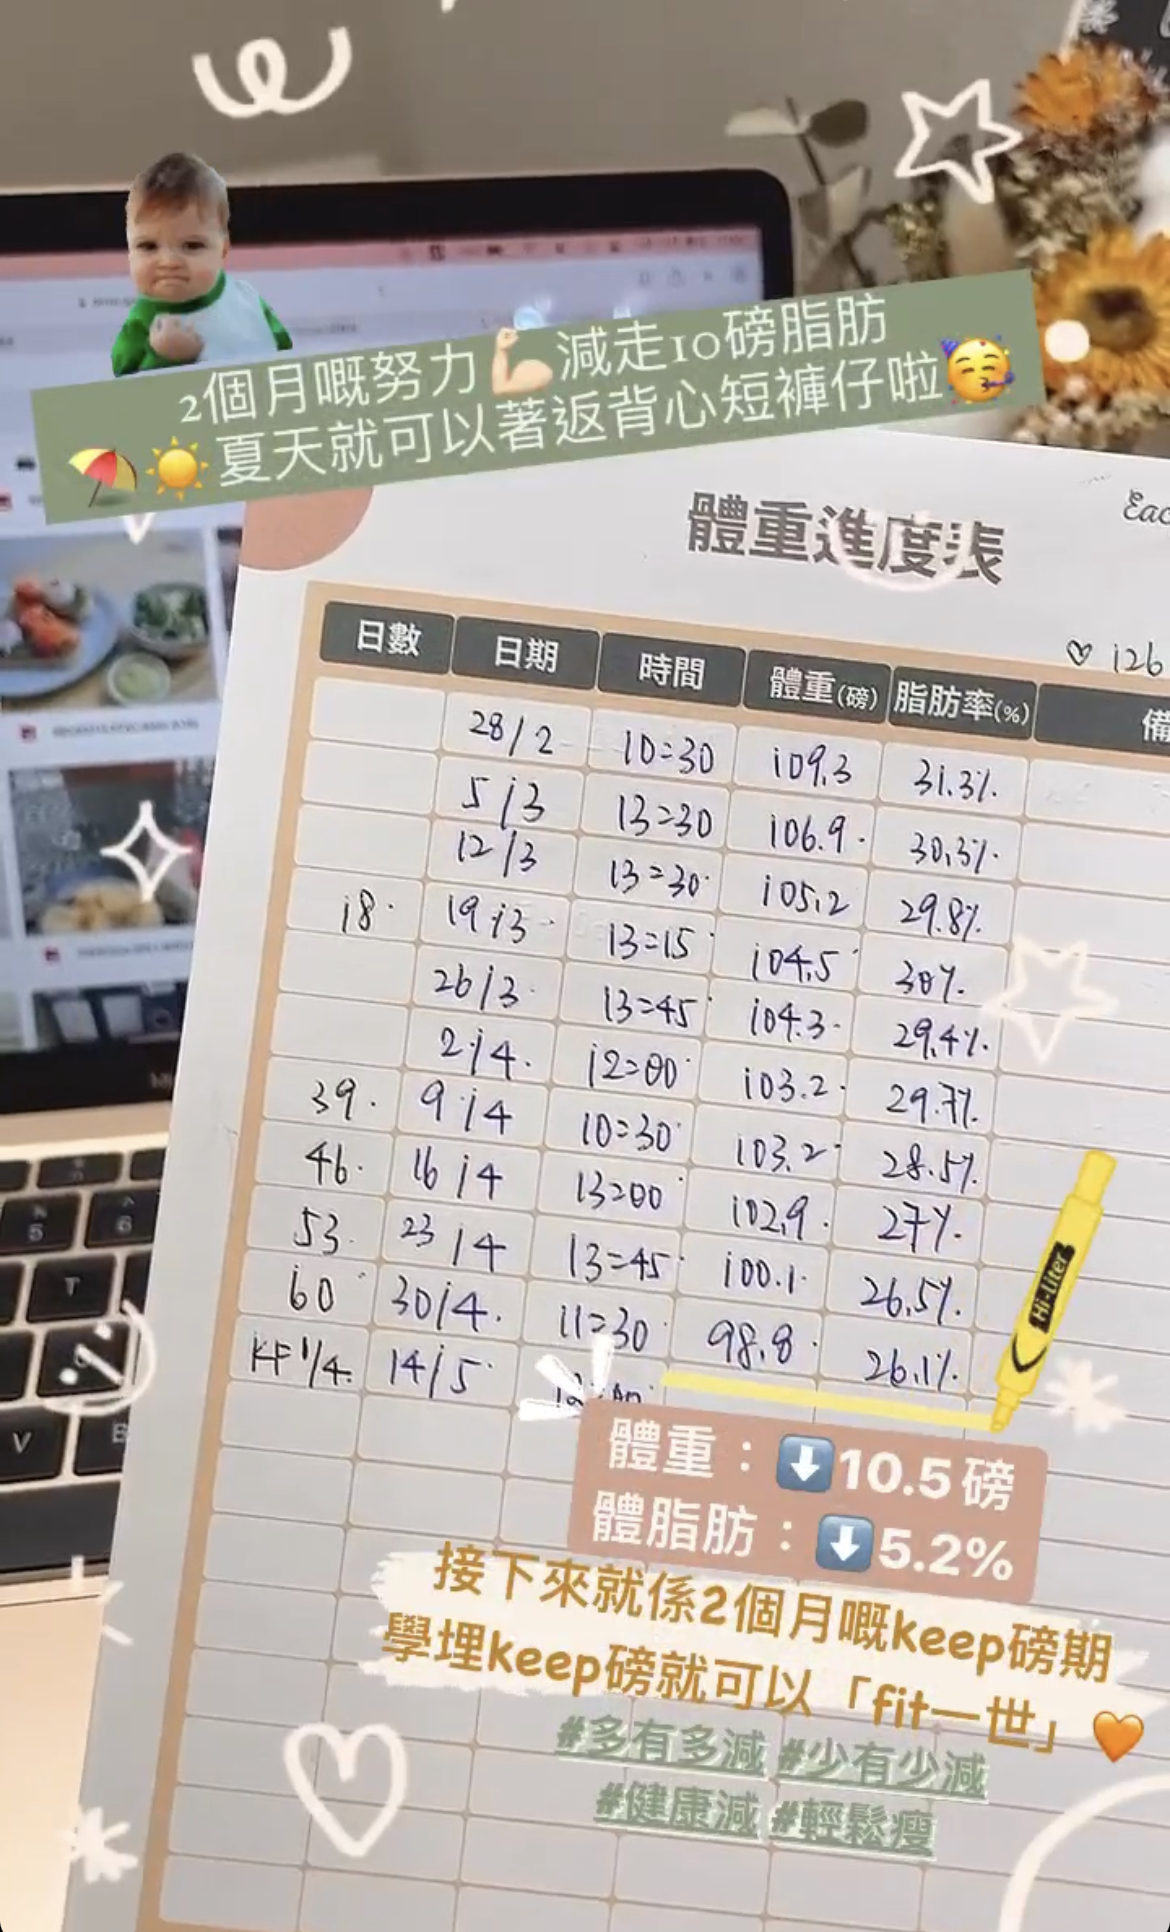 2個月嘅努力💪🏻減走10磅脂肪
⛱️☀️夏天就可以著返背心短褲仔啦🥳
體重進度表
♡ 126
日數 日期 時間 體重(磅) 脂肪率(%)
28/2 10:30 109.3 31.3%
5/3 13:30 106.9 30.3%
12/3 13:30 105.2 29.8%
18 19/3 13:15 104.5 30%
26/3 13:45 104.3 29.4%
2/4 12:00 103.2 29.7%
39 9/4 10:30 103.2 28.5%
46 16/4 13:00 102.9 27%
53 23/4 13:45 100.1 26.5%
60 30/4 11:30 98.8 26.1%
14/5
Hi-Liter
體重：⬇️10.5磅
體脂肪：⬇️5.2%
接下來就係2個月嘅keep磅期
學埋keep磅就可以「fit一世」🧡
#多有多減 #少有少減
#健康減 #輕鬆瘦